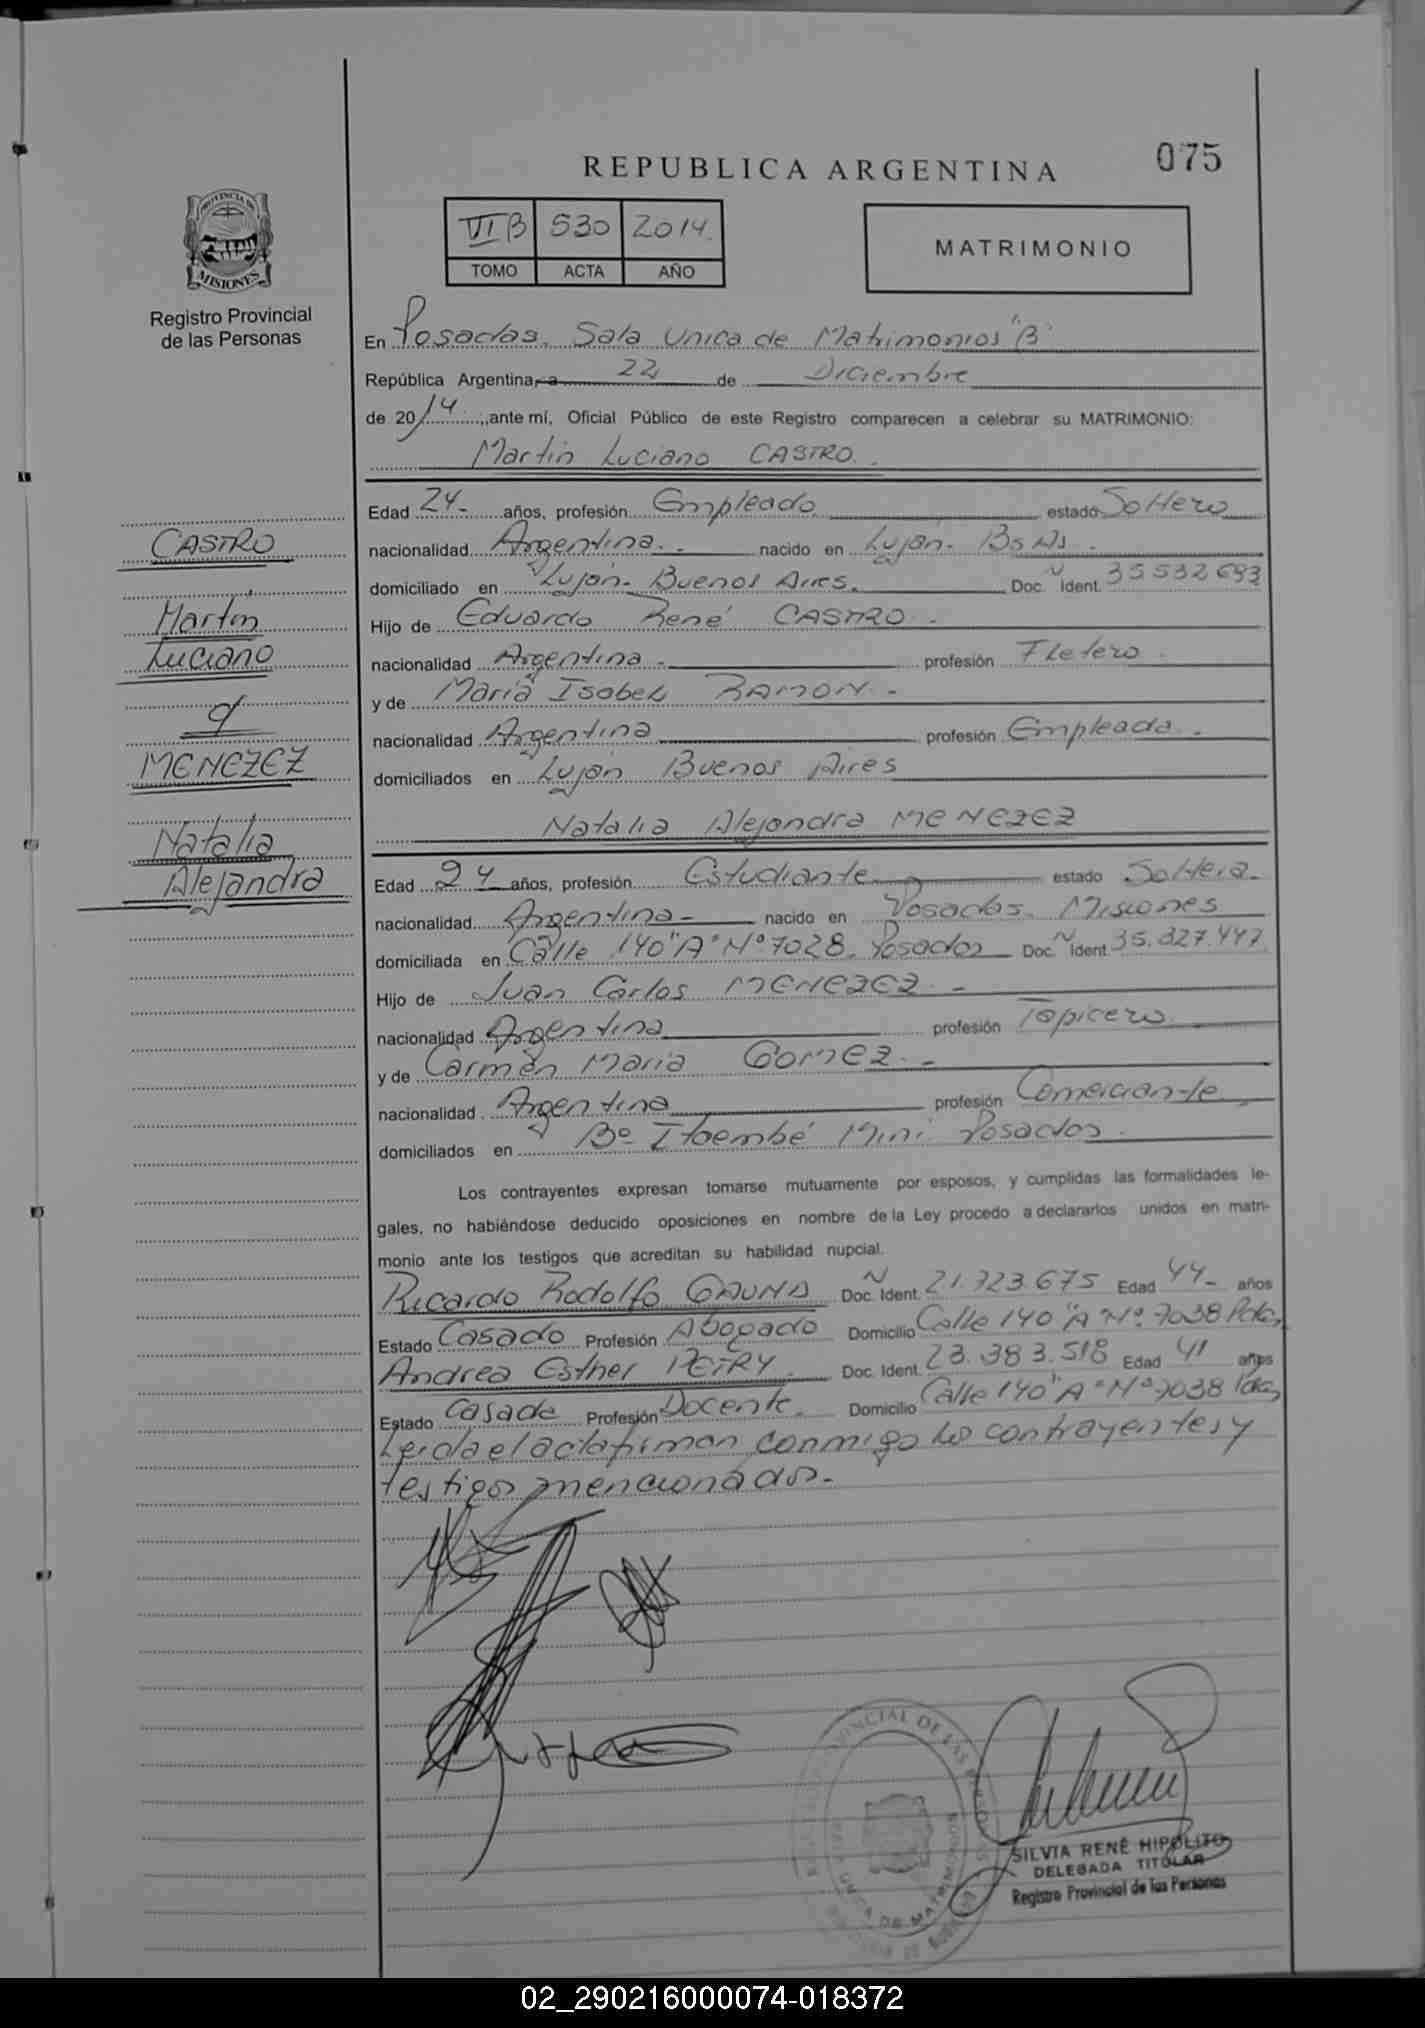 REPUBLICA ARGENTINA
075
PROVINCIA DE
MISIONES
Registro Provincial
de las Personas
VI B 530 2014.
TOMO ACTA AÑO
MATRIMONIO
En Posadas, Sala Unica de Matrimonios "B"
República Argentina, a 22 de Diciembre
de 2014, ante mí, Oficial Público de este Registro comparecen a celebrar su MATRIMONIO:
Martin Luciano CASTRO.
Edad 24 años, profesión Empleado estado Soltero
nacionalidad Argentina. nacido en Luján. Bs As.
domiciliado en Luján. Buenos Aires. Doc. N Ident. 35532693
Hijo de Eduardo René CASTRO.
nacionalidad Argentina. profesión Fletero.
y de Maria Isabel RAMON.
nacionalidad Argentina profesión Empleada.
domiciliados en Luján Buenos Aires
CASTRO
Martin
Luciano
y
MENEZEZ
Natalia
Alejandra
Natalia Alejandra MENEZEZ
Edad 24 años, profesión Estudiante estado Soltera
nacionalidad Argentina nacido en Posadas. Misiones
domiciliada en Calle 140 "A" Nº 7028. Posadas Doc. N Ident. 35.327.447
Hijo de Juan Carlos MENEZEZ.
nacionalidad Argentina profesión Tapicero
y de Carmen Maria GOMEZ.
nacionalidad Argentina profesión Comerciante
domiciliados en Bº Itaembé Mini Posadas.
Los contrayentes expresan tomarse mutuamente por esposos, y cumplidas las formalidades le-
gales, no habiéndose deducido oposiciones en nombre de la Ley procedo a declararlos unidos en matri-
monio ante los testigos que acreditan su habilidad nupcial.
Ricardo Rodolfo GAUNA Doc. N Ident. 21.723.675 Edad 44 años
Estado Casado Profesión Abogado Domicilio Calle 140 "A" Nº 7038 Pdas,
Andrea Esther PETRY. Doc. Ident. 23.383.518 Edad 41 años
Estado Casada Profesión Docente. Domicilio Calle 140 "A" Nº 7038 Pdas,
Leida el acta firman conmigo los contrayentes y
testigos mencionados.
SILVIA RENÉ HIPÓLITO
DELEGADA TITULAR
Registro Provincial de las Personas
02_290216000074-018372